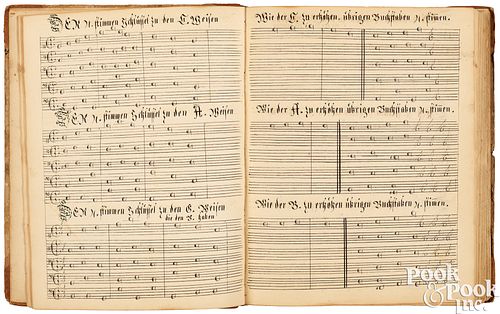 DER 4. stimmen Schlüssel zu den C. Weisen
DER 4. stimmen Schlüssel zu den A. Weisen
DER 4. stimmen Schlüssel zu den G. Weisen
Wie der C. zu erhöhen übrigen Buchstaben 4. stimen.
Wie der A. zu erhöhen übrigen Buchstaben 4. stimen.
Wie der B. zu erhöhen übrigen Buchstaben 4. stimen.
Pook
& Pook
Inc.